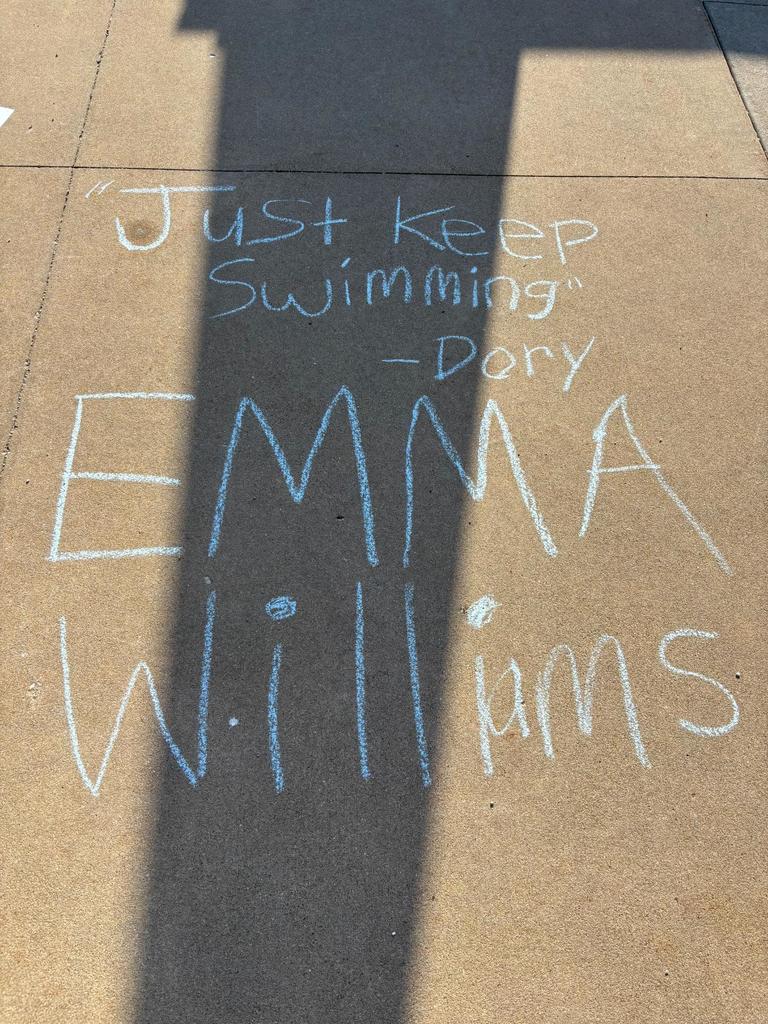 "Just Keep
Swimming"
-Dory
EMMA
Williams